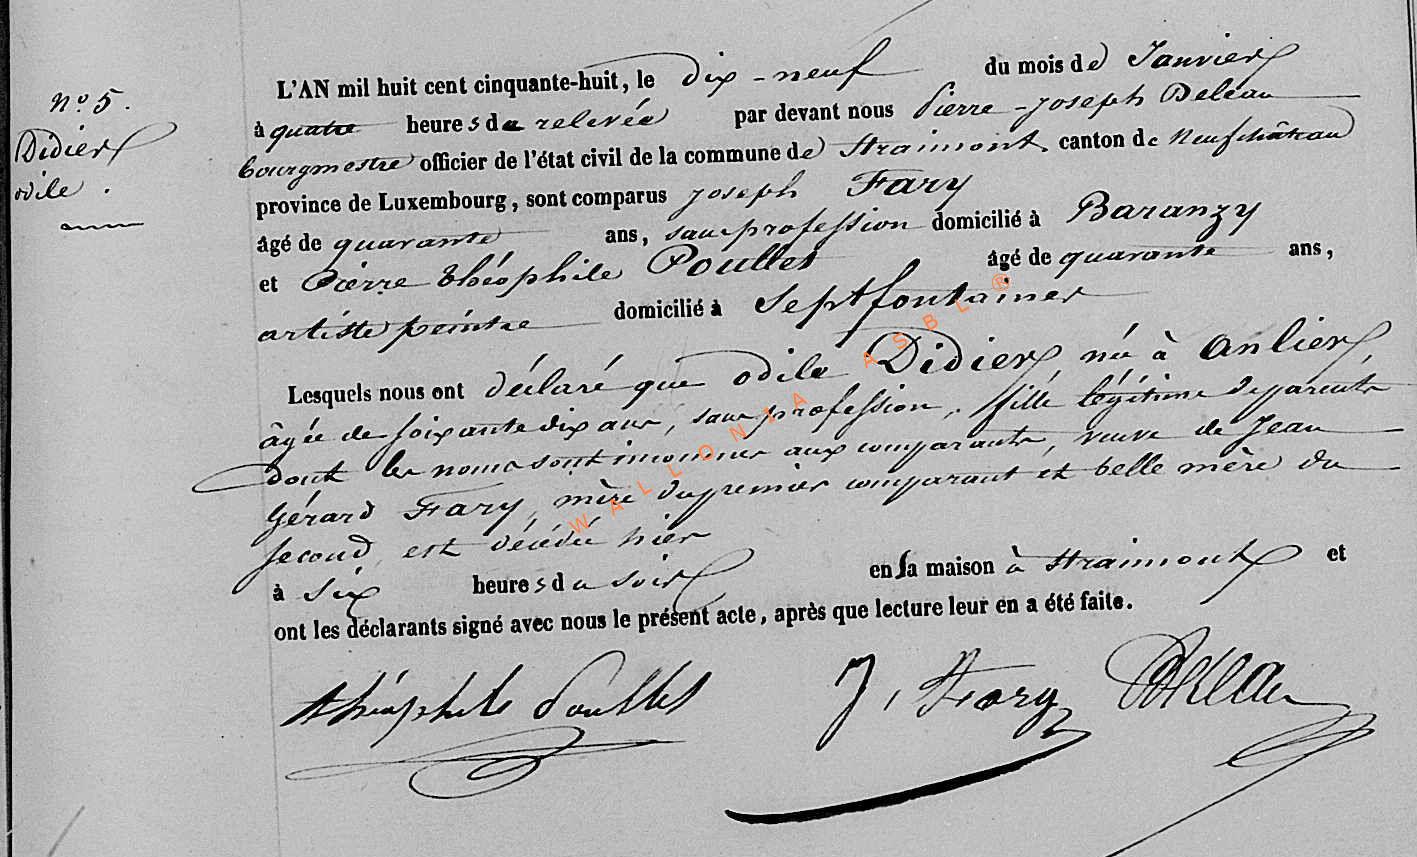 n° 5.
Didier
odile.
L'AN mil huit cent cinquante-huit, le dix-neuf du mois de Janvier
à quatre heures de relevée par devant nous Pierre-Joseph Deleau
bourgmestre officier de l'état civil de la commune de Straimont, canton de Neufchâteau
province de Luxembourg, sont comparus Joseph Fary
âgé de quarante ans, sans profession domicilié à Baranzy
et Pierre théophile Poullet âgé de quarante ans,
artiste peintre domicilié à Septfontaines
Lesquels nous ont déclaré que odile Didier, née à Anlier,
âgée de soixante dix ans, sans profession, fille légitime de parents
dont les noms sont inconnus aux comparants, veuve de Jean
Gérard Fary, mère du premier comparant et belle mère du
second, est décédée hier
à six heures du soir en sa maison à Straimont et
ont les déclarants signé avec nous le présent acte, après que lecture leur en a été faite.
théophile Poullet J. Fary Deleau
WALLONIA ASBL ®